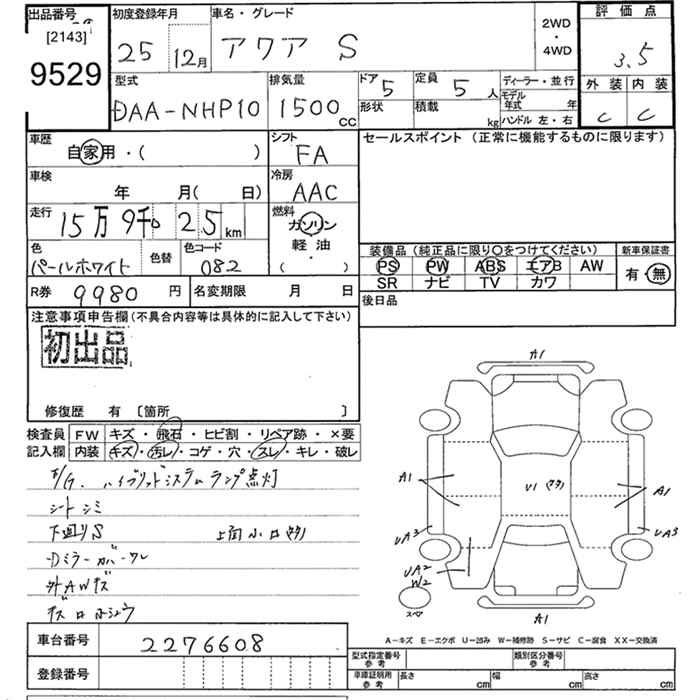 出品番号
[2143]
9529
初度登録年月
25 12月
車名・グレード
アクア S
2WD
・
4WD
評価点
3.5
外装 内装
C C
型式
DAA-NHP10
排気量
1500 cc
ドア 5
形状
定員 5 人
積載 kg
ディーラー・並行
モデル
年式 年
ハンドル 左・右
車歴
自家用・( )
シフト
FA
セールスポイント (正常に機能するものに限ります)
車検
年 月( 日)
冷房
AAC
走行
15万 9千 25 km
燃料
ガソリン
軽油
( )
色
パールホワイト
色替
色コード
082
装備品 (純正品に限り○をつけてください)
PS PW ABS エアB AW
SR ナビ TV カワ
新車保証書
有・無
R券 9980 円
名変期限 月 日
後日品
注意事項申告欄(不具合内容等は具体的に記入して下さい)
初出品
修復歴 有 [箇所 ]
検査員
記入欄
FW キズ・飛石・ヒビ割・リペア跡・×要
内装 キズ・汚レ・コゲ・穴・スレ・キレ・破レ
ハイブリッドシステムランプ点灯
シートシミ
下廻りS
外AWキズ
A1
A1
U1
A1
UA3
UA3
UA2
W2
スペア
A1
A-キズ E-エクボ U-凹み W-補修跡 S-サビ C-腐食 XX-交換済
車台番号 2276608
登録番号
型式指定番号
参考
類別区分番号
参考
車庫証明用
参考
長さ cm 幅 cm 高さ cm